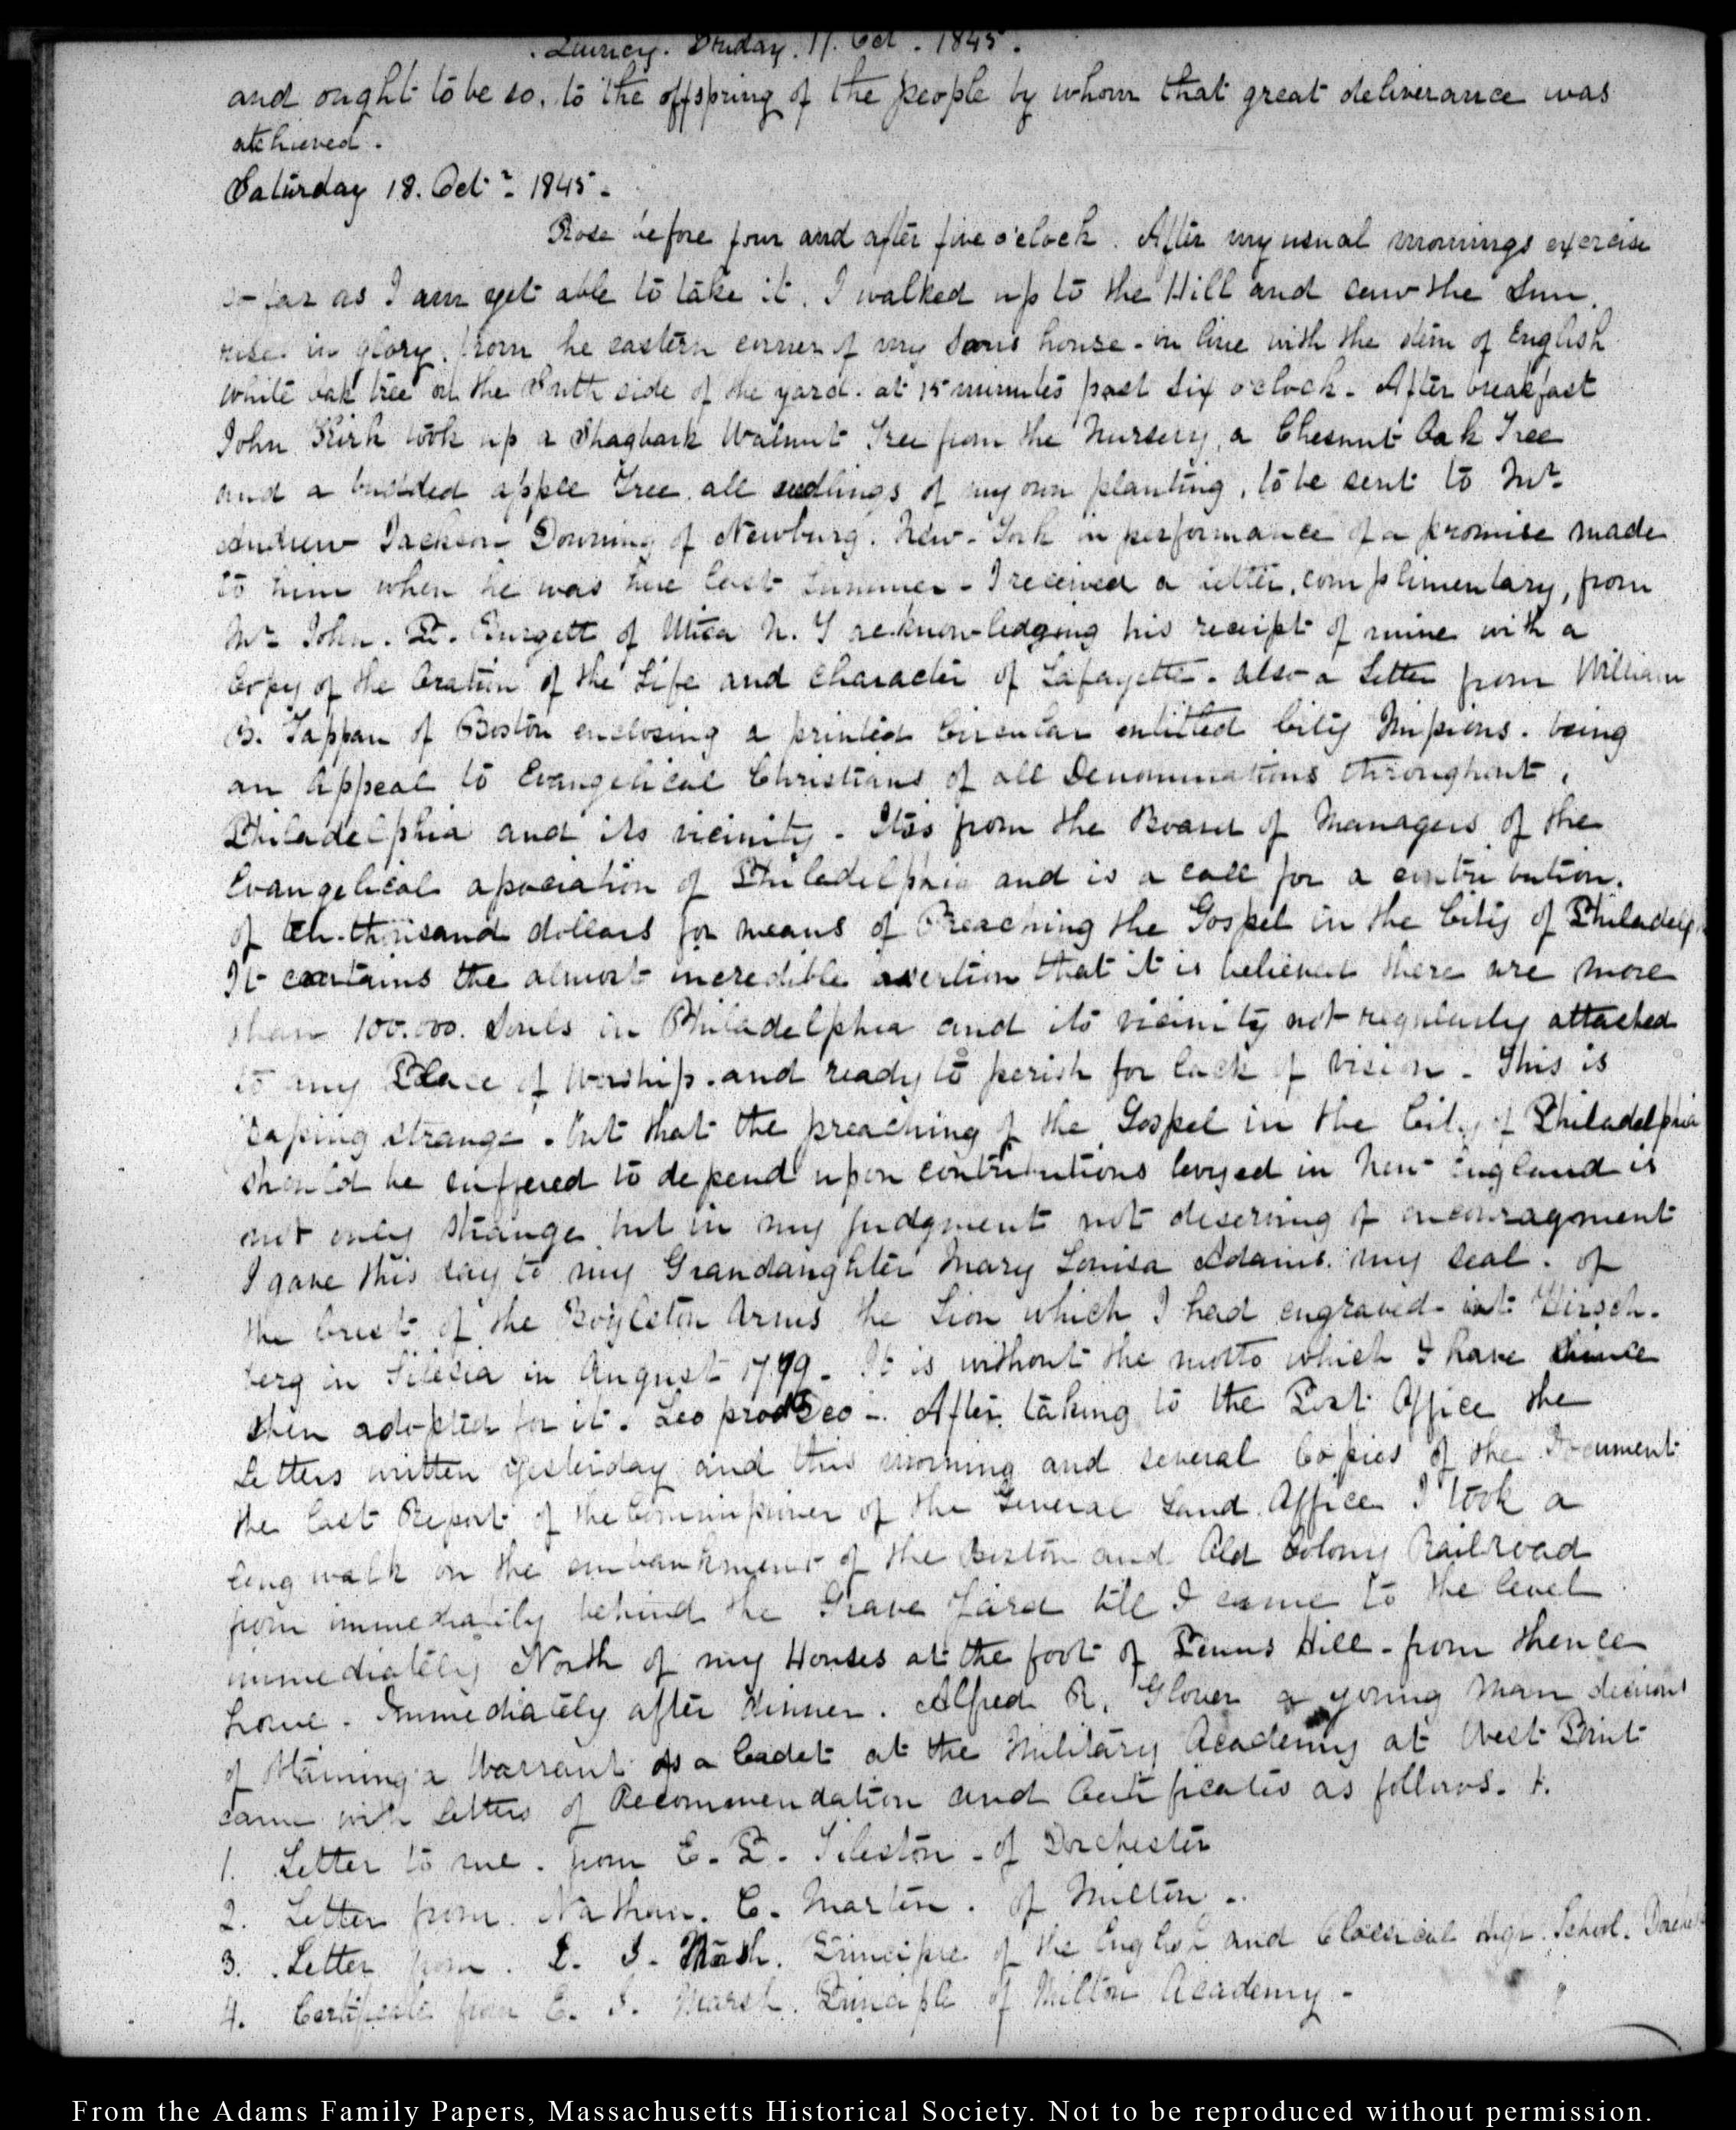 Quincy. Friday. 17. Oct. 1845.
and ought to be so, to the offspring of the people by whom that great deliverance was
atchieved.
Saturday 18. Octr. 1845.
Rose before four and after five o'clock. After my usual mornings exercise
so far as I am yet able to take it, I walked up to the Hill and saw the Sun
rise in glory, from the eastern corner of my Sons house - in line with the stem of English
white oak tree on the South side of the yard. at 15 minutes past six o'clock. After breakfast
John Kirk took up a Shagbark Walnut Tree from the Nursery, a Chesnut Oak Tree
and a budded apple Tree, all seedlings of my own planting, to be sent to Mr
Andrew Jackson Downing of Newburg. New-York in performance of a promise made
to him when he was here last Summer - I received a letter, complimentary, from
Mr John. P. of Utica N. Y acknowledging his receipt of mine with a
Copy of the Oration of the Life and Character of Lafayette. also a Letter from William
B. Tappan of Boston enclosing a printed Circular entitled City Missions. being
an Appeal to Evangelical Christians of all Denominations throughout
Philadelphia and its vicinity - Itis from the Board of Managers of the
Evangelical association of Philadelphia and is a call for a contribution.
of ten thousand dollars for means of Preaching the Gospel in the City of Philadelp
It contains the almost incredible assertion that it is believed there are more
than 100.000. Souls in Philadelphia and its vicinity not regularly attached
to any Place of Worship. and ready to perish for lack of vision - This is
passing strange. but that the preaching of the Gospel in the City of Philadelphia
should be suffered to depend upon contributions levyed in New England is
not only strange but in my judgment not deserving of encouragement
I gave this day to my Grandaughter Mary Louisa Adams. my seal. of
the Crest of the Boylston Arms the Lion which I had engraved at Hirsch-
berg in Silesia in August 1799 - It is without the motto which I have since
then adopted for it. Leo prodSeo -. After taking to the Post Office the
Letters written yesterday and this morning and several Copies of the Document
the last Report of the Commissioner of the General Land Office I took a
long walk on the embankment of the Boston and Old Colony Railroad
from immediately behind the Grave Yard till I came to the level
immediately North of my Houses at the foot of Penns Hill - from thence
home. Immediately after dinner. Alfred R. Glover a young Man desirous
of obtaining a Warrant as a Cadet at the Military Academy at West Point
came with letters of Recommendation and Certificates as follows.
1. Letter to me. from E. P. Tileston - of Dorchester
2. Letter from. Nathan. C. Martin. of Milton -.
3. Letter from. Principle of the English and Classical High. School.
4. Certificate from Marsh. Principle of Milton Academy. -
From the Adams Family Papers, Massachusetts Historical Society. Not to be reproduced without permission.